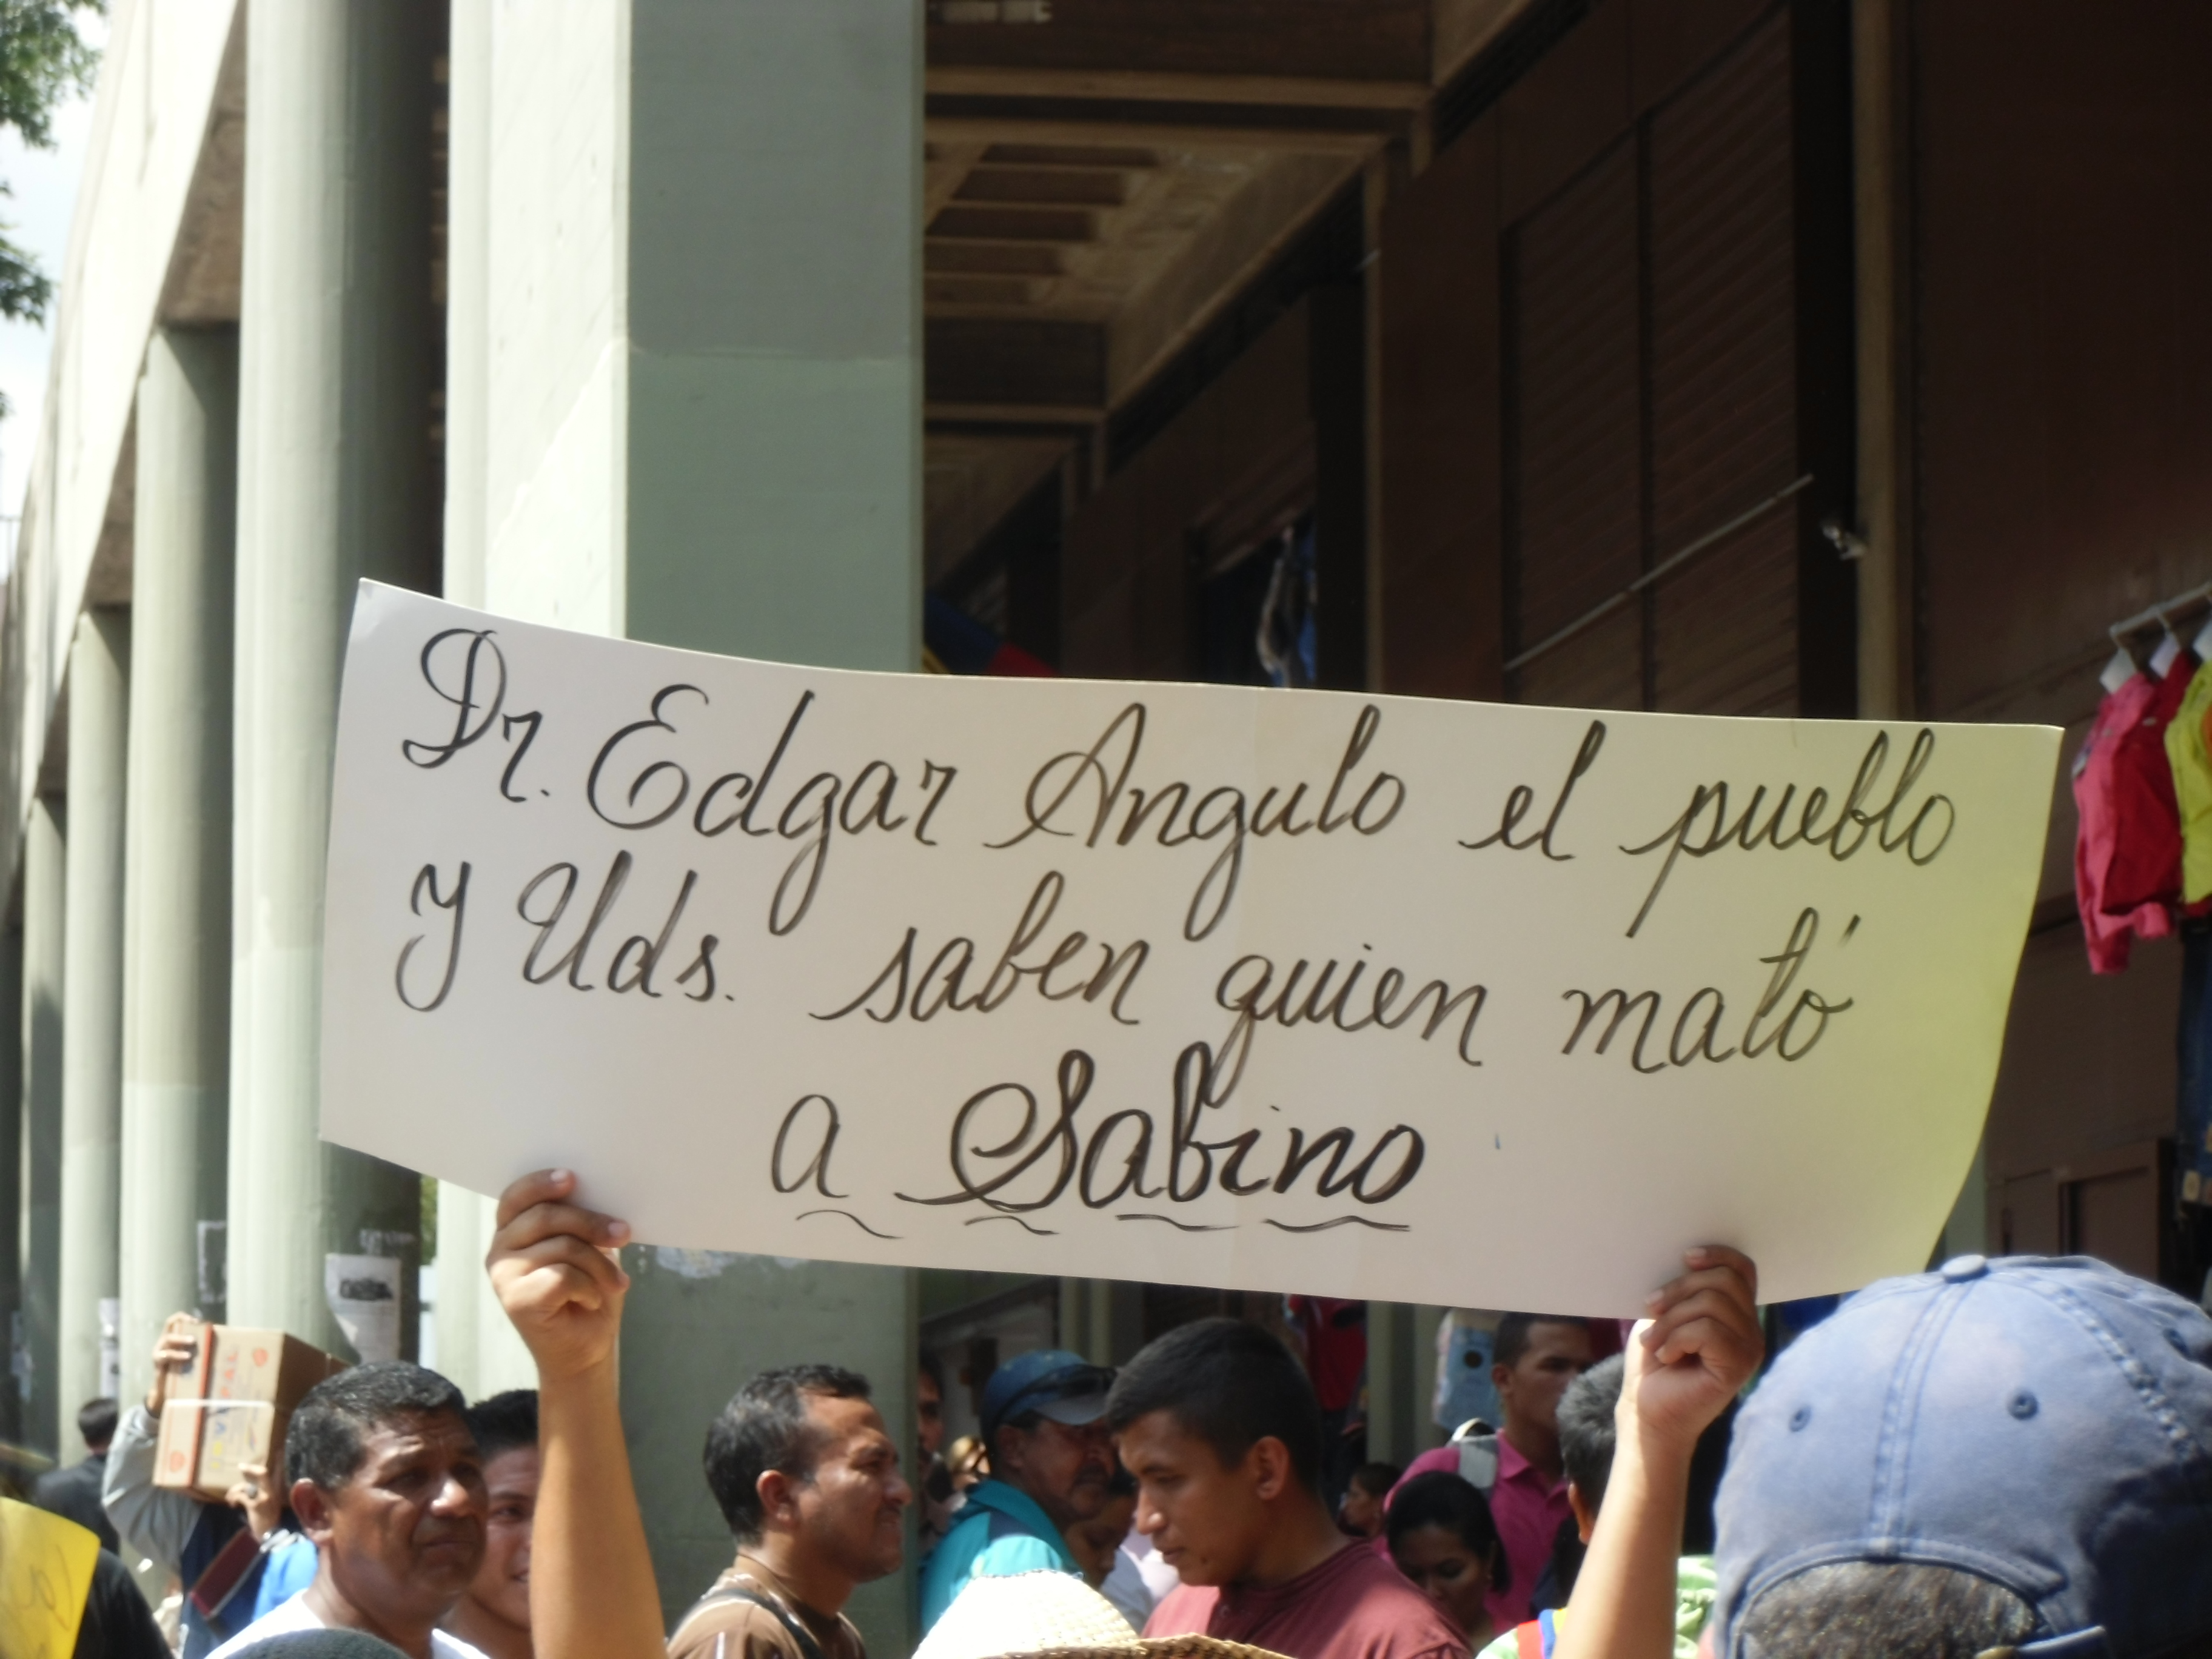 Dr. Edgar Angulo el pueblo
y Uds. saben quien mató
a Sabino